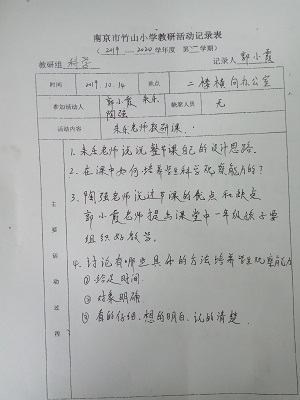 南京市竹山小学教研活动记录表
(2019—2020学年度 第一学期)
教研组 科学 记录人 郭小霞
时间 2019.10.14 地点 二楼横向办公室
参加活动人 郭小霞 朱乐 陶强 缺席人员 无
活动内容 朱乐老师教研课.
主要活动过程
1. 朱乐老师说说整节课自己的设计思路.
2. 在课中如何培养学生科学观察能力的?
3. 陶强老师说过节课的优点和缺点
郭小霞老师提出课堂中一年级孩子要
组织好教学.
4. 讨论有哪些具体的方法培养学生观察能力
① 给足时间.
② 对象明确
③ 看的仔细、想的明白、说的清楚.